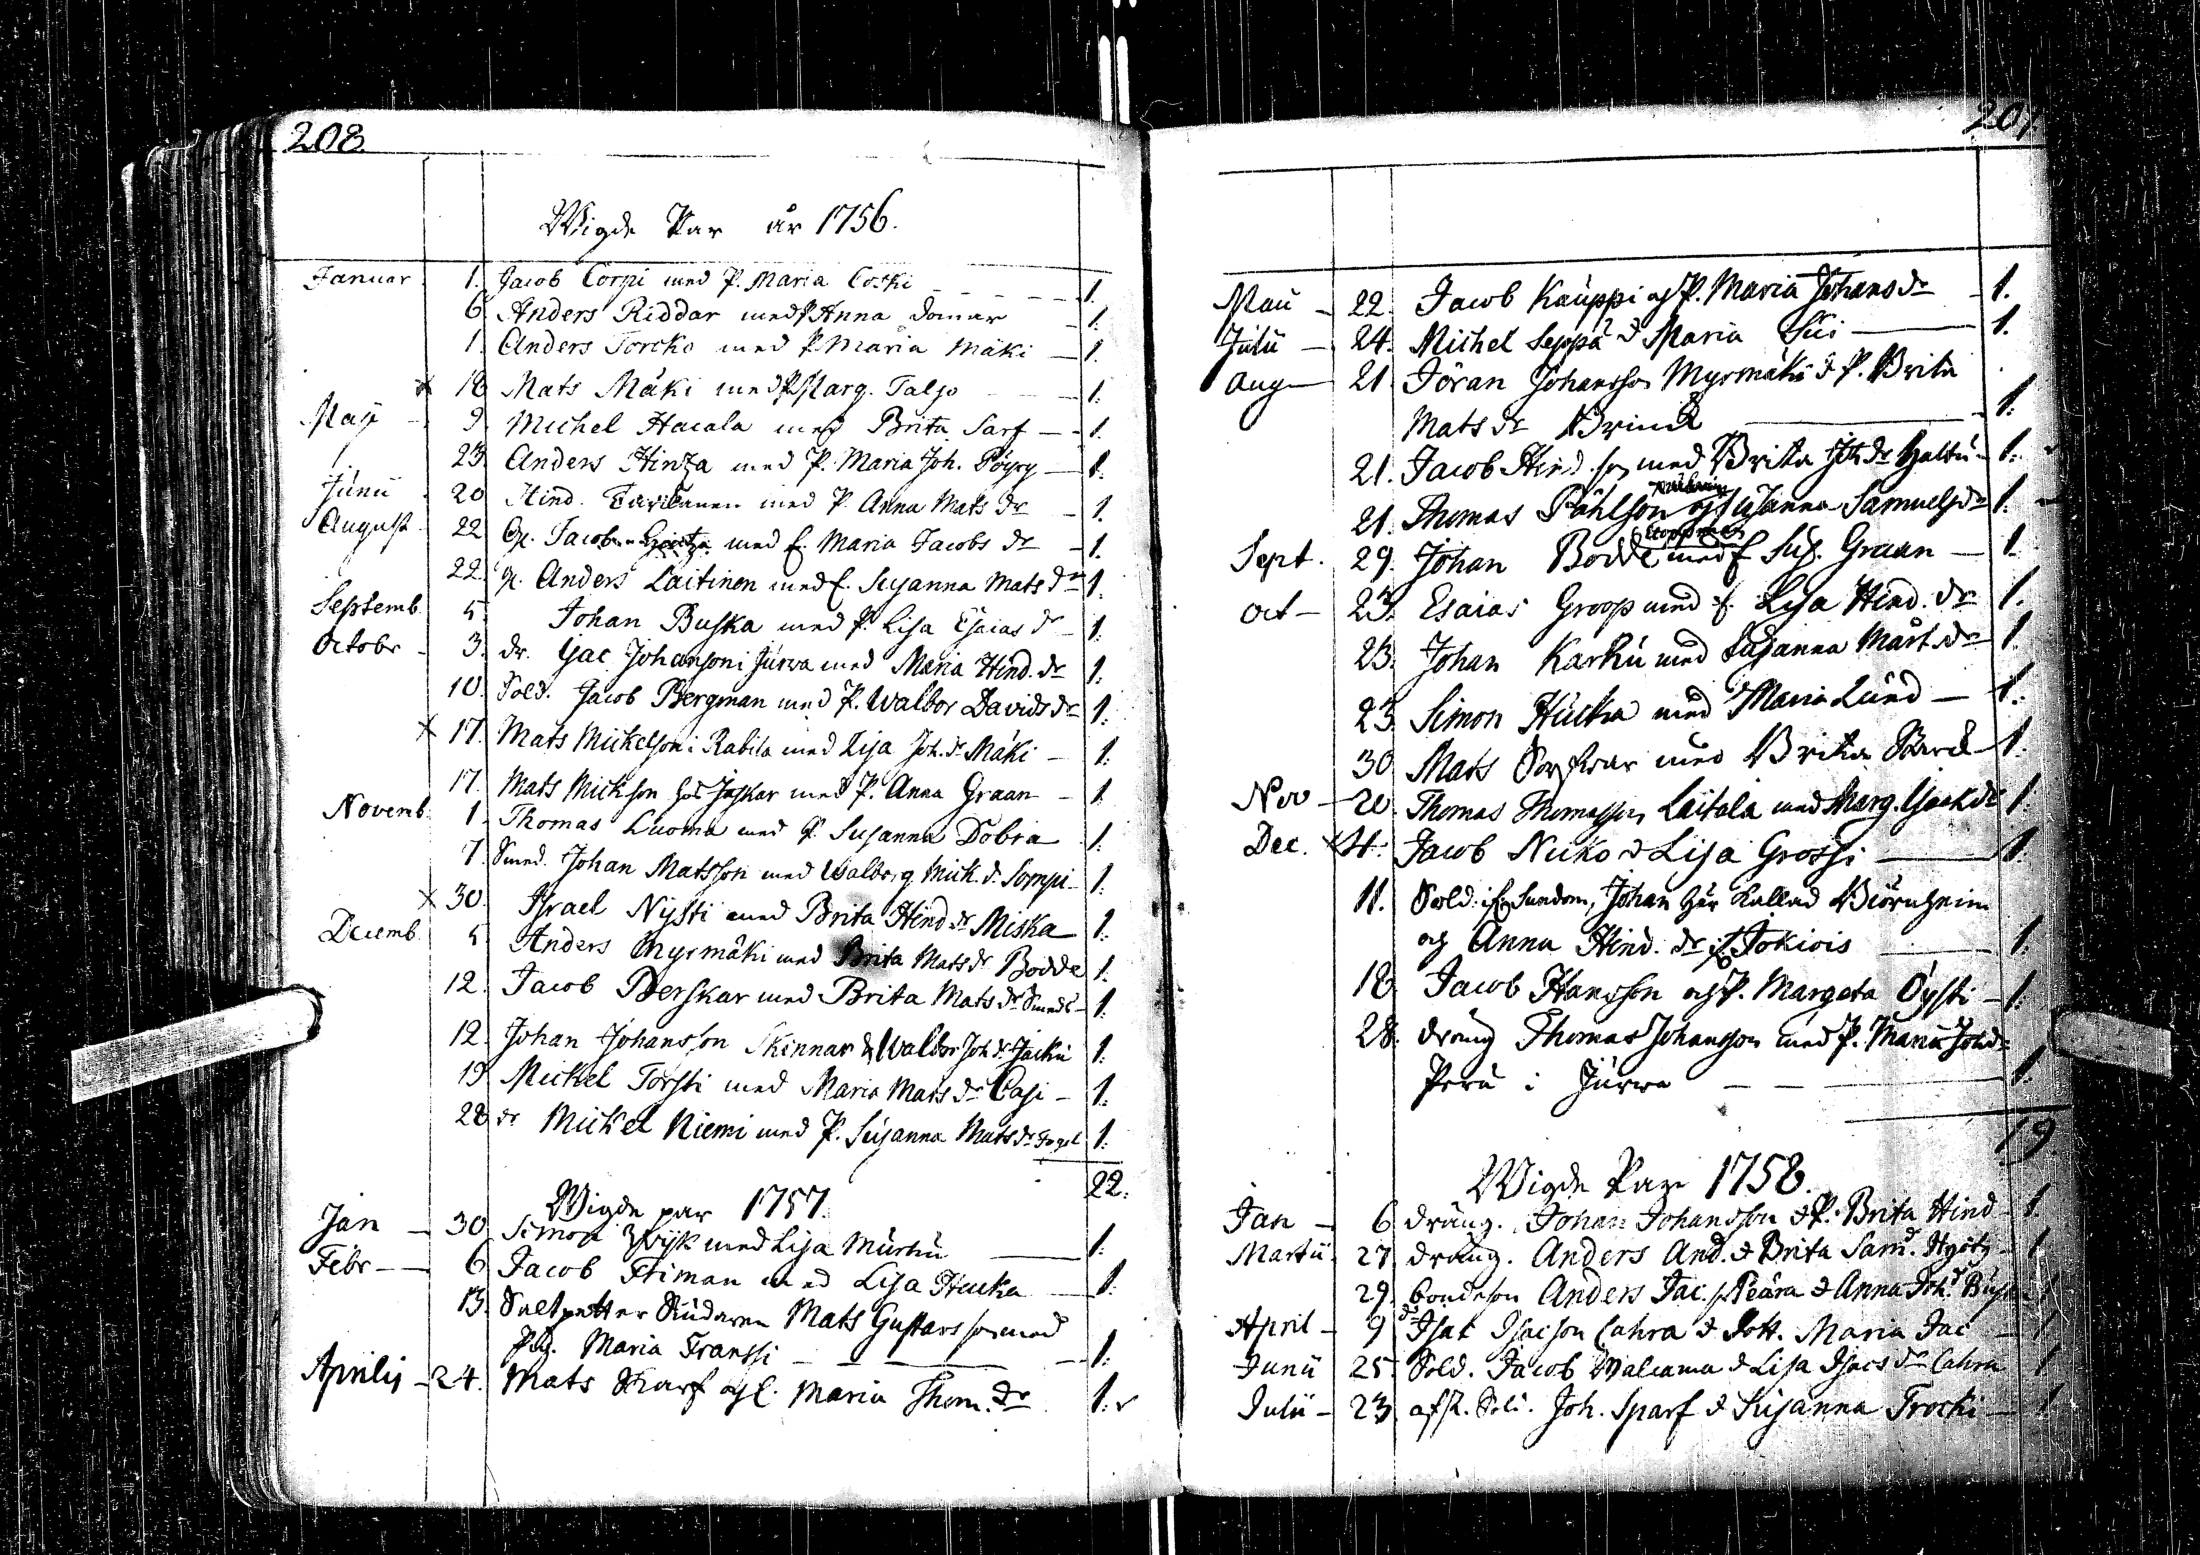 208
Wigde Par år 1756.
Januar. 1. Jacob Corpi med P. Maria Coski 1.
6. Anders Riddar med P Anna Domar 1.
1. Anders Torcko med P. Maria Mäki 1.
x 18 Mats Mäki med P Marg. Talso 1.
Maji 9 Michel Hacala med Brita Sarf 1.
23. Anders Hinza med P. Maria Joh. Pöyry 1.
Junii 20 Hind. med P. Anna Mats dr 1.
August 22 Jacob med E. Maria Jacobs dr 1.
22. Anders Laitinen med E. Susanna Mats dr 1.
Septemb. 5 Johan Buska med P. Lisa Esaias dr 1.
Octobr 3. dr. Isac Johansson i Jurva med Maria Hind. dr 1.
10. Sold. Jacob Bergman med P. Walbor Davids dr 1.
x 17. Mats Mickelson i Rabila med Lisa Joh. dr Mäki 1.
17. Mats Mickson hos Jaskar med P. Anna Graan 1
Novemb. 1. Thomas Luoma med P. Susanna Dobra 1.
7. Smed. Johan Matsson med Walborg Mick. d. Sompi 1.
x 30. Israel Nysti med Brita Hind dr Miska 1.
Decemb. 5 Anders Myrmäki med Brita Mats dr Bodde 1.
12. Jacob Perskar med Brita Mats dr Smeds 1.
12. Johan Johansson Skinnar & Walbor Joh dr Jacku 1.
19 Mickel Torsti med Maria Mats dr Casi 1.
28 dr Mickel Niemi med P. Susanna Mats dr Fogel 1.
22.
Wigde par 1757.
Jan 30 Simon Wijk med Lisa Murtu 1.
Febr 6 Jacob Friman med Lisa Hucka 1.
13. Saltpetter Siudaren Mats Gustavsson med
Pig. Maria Franssi 1.
Aprilis 24. Mats Skarf og E. Maria Thom. dr 1.
207.
Maii 22. Jacob Kauppi og P. Maria Johans dr 1.
Julii 24. Michel Seppä & Maria Sui 1.
Aug 21 Jöran Johansson Myrmäki & P. Brita
Mats dr Brinck 1.
21. Jacob Hind. son med Brita Joh dr Hattu 1.
21. Thomas Påhlson og Susanna Samuels dr 1.
Sept. 29. Johan Bodde med E Sus. Graan 1.
Oct 23. Esaias Groop med E. Lisa Hind. dr 1.
23. Johan Karku med Susanna Mårt. dr 1.
23. Simon Hucka med Maria Lund 1.
30 Mats med Brita 1.
Nov 20. Thomas Thomasson Laitala med Marg. Isaks dr 1.
Dec. x 4. Jacob Neiko & Lisa Grossi 1.
11. Sold. i Sundom, Johan här kallad Biörnheim
og Anna Hind. dr i Jokiois 1.
18 Jacob Hansson og P. Margeta Öysti 1.
28. dräng Thomas Johansson med P. Maria Joh dr
Peru i Jurwa 1.
19
Wigde Par 1758.
Jan 6 dräng. Johan Johansson & P. Brita Hind 1.
Martii 27 dräng. Anders And. & Brita Sam d. 1
29. bondeson Anders Jac. s. Peära & Anna Joh. d. 1
April 9 dr Isak Isacson Cahra & Dott. Maria Jac 1
Junii 25 Sold. Jacob Walcama & Lisa Isacs dr Cahra 1
Julii 23 afsk. Sold. Joh. Sparf & Susanna Trocki 1